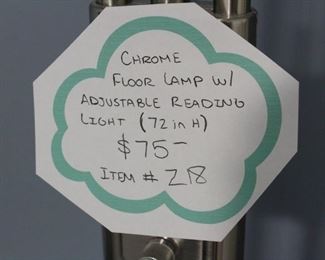 CHROME
FLOOR LAMP W/
ADJUSTABLE READING
LIGHT (72 in H)
$75-
ITEM # 218